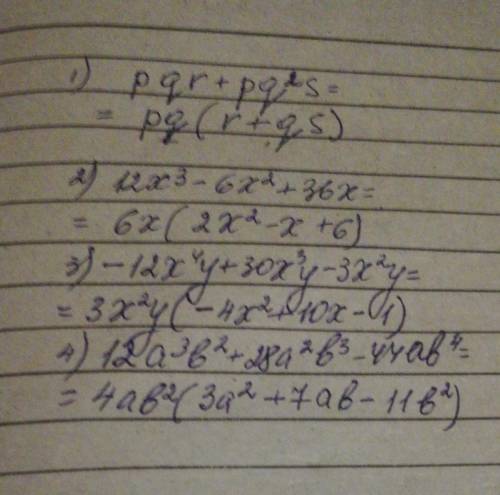 1) pqr + pq²s =
= pq(r + qs)
2) 12x³ - 6x² + 36x =
= 6x(2x² - x + 6)
3) -12x⁴y + 30x³y - 3x²y =
= 3x²y(-4x² + 10x - 1)
4) 12a³b² + 28a²b³ - 44ab⁴ =
= 4ab²(3a² + 7ab - 11b²)